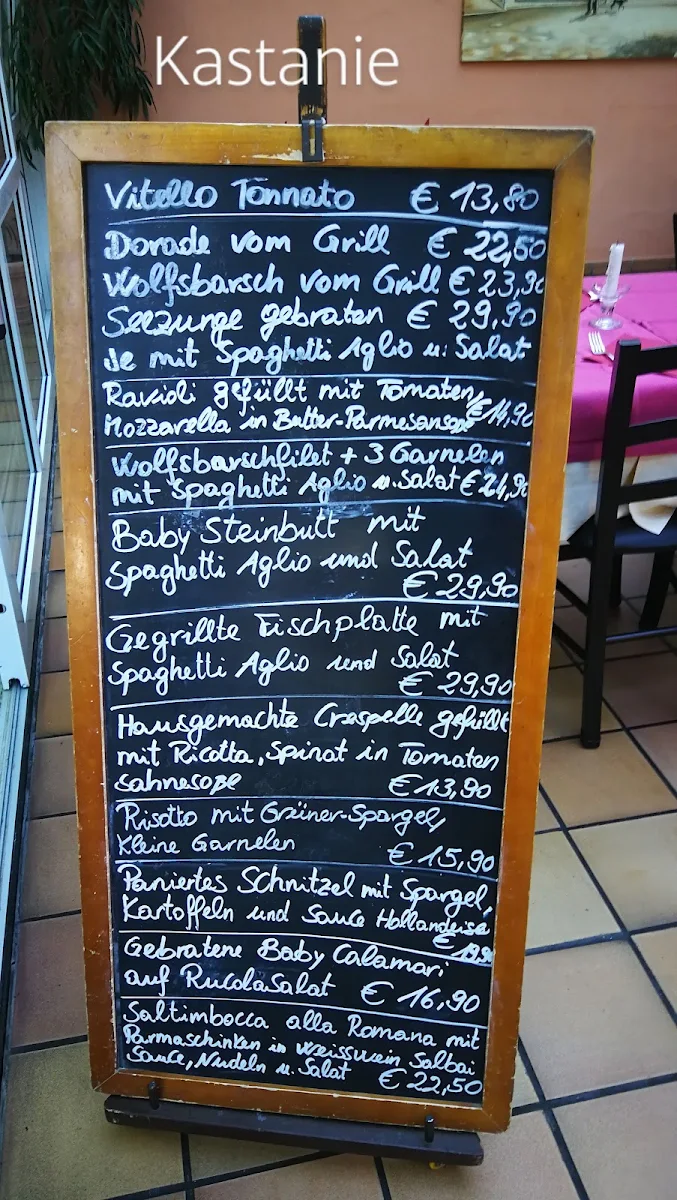 Kastanie
Vitello Tonnato € 13,80
Dorade vom Grill € 22,50
Wolfsbarsch vom Grill € 23,90
Seezunge gebraten € 29,90
Je mit Spaghetti Aglio u. Salat
Ravioli gefüllt mit Tomaten,
Mozzarella in Butter-Parmesansoße € 14,90
Wolfsbarschfilet + 3 Garnelen
mit Spaghetti Aglio u. Salat € 24,90
Baby Steinbutt mit
Spaghetti Aglio und Salat
€ 29,90
Gegrillte Fischplatte mit
Spaghetti Aglio und Salat
€ 29,90
Hausgemachte Crespelle gefüllt
mit Ricotta, Spinat in Tomaten
sahnesoße € 13,90
Risotto mit Grüner-Spargel,
Kleine Garnelen
€ 15,90
Paniertes Schnitzel mit Spargel,
Kartoffeln und Sauce Hollandeise
€ 19,90
Gebratene Baby Calamari
auf RucolaSalat € 16,90
Saltimbocca alla Romana mit
Parmaschinken in Weisswein, Salbai
Sauce, Nudeln u. Salat € 22,50